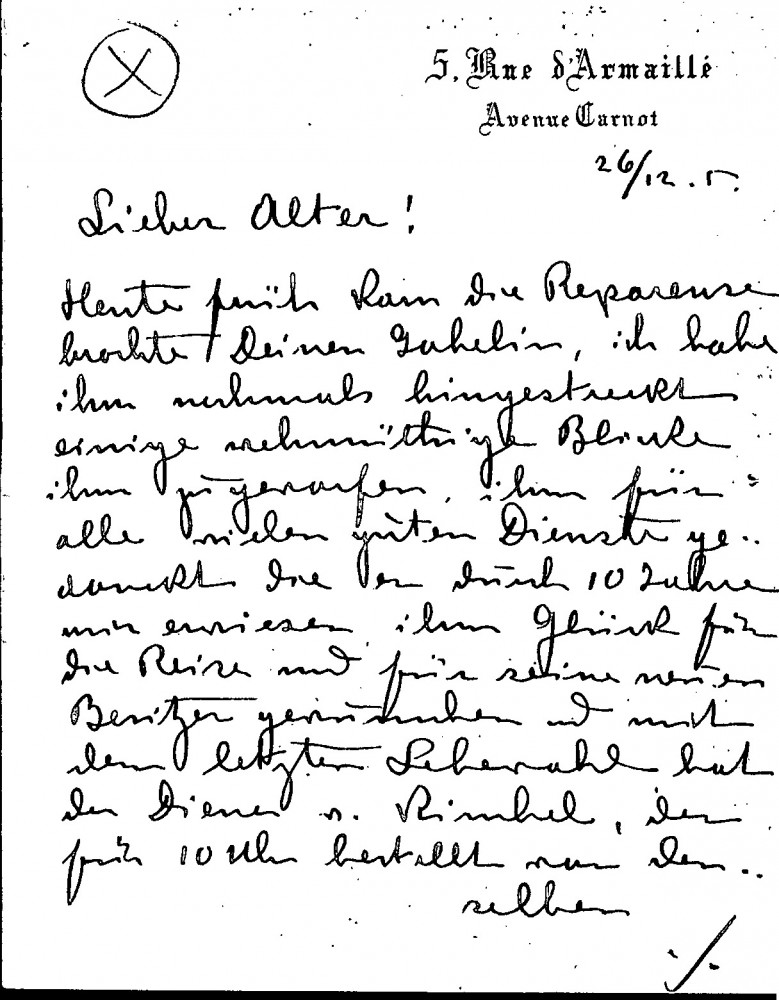 5, Rue d'Armaillé
Avenue Carnot
26/12. 5.
Lieber Alter!
Heute früh kam die Repareuse
brachte Deinen Gobelin, ich habe
ihm nochmals hingestreckt
einige wehmüthige Blicke
ihm zugeworfen, ihm für
alle vielen guten Dienste ge-
dankt die er durch 10 Jahre
mir erwiesen, ihm Glück für
die Reise und für seine neuen
Besitzer gewünschen und mit
dem letzten Lebewohl hat
der Diener v. Kimbel, der
für 10 Uhr bestellt war den-
selben
./.